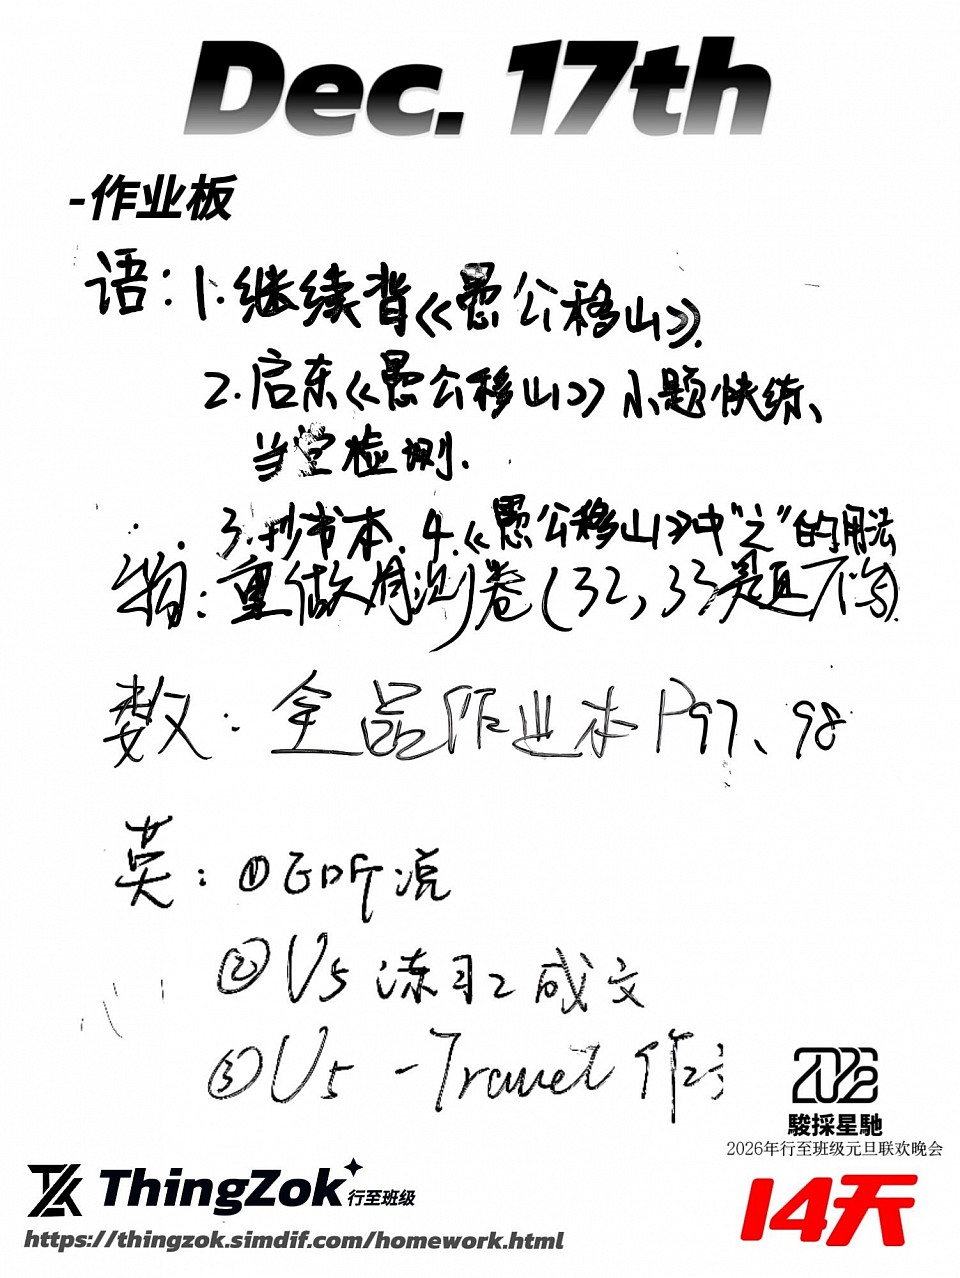 Dec. 17th
-作业板
语：1.继续背《愚公移山》.
2.启东《愚公移山》小题快练、
当堂检测.
3.抄书本.4.《愚公移山》中“之”的用法
物：重做周测卷(32,33题不写)
数：全品作业本P97、98
英：①E听说
②U5 练习2 成文
③U5 -Travel 作文
2026
駿採星馳
2026年行至班级元旦联欢晚会
ThingZok 行至班级
14天
https://thingzok.simdif.com/homework.html